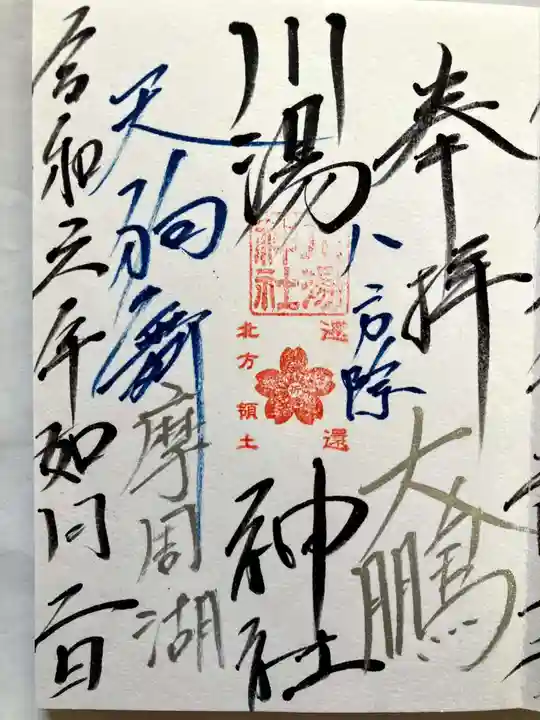 奉拝
大鵬
八方除
川湯神社
川湯神社
返還
北方領土
天狗舞
摩周湖
令和六年如月一日